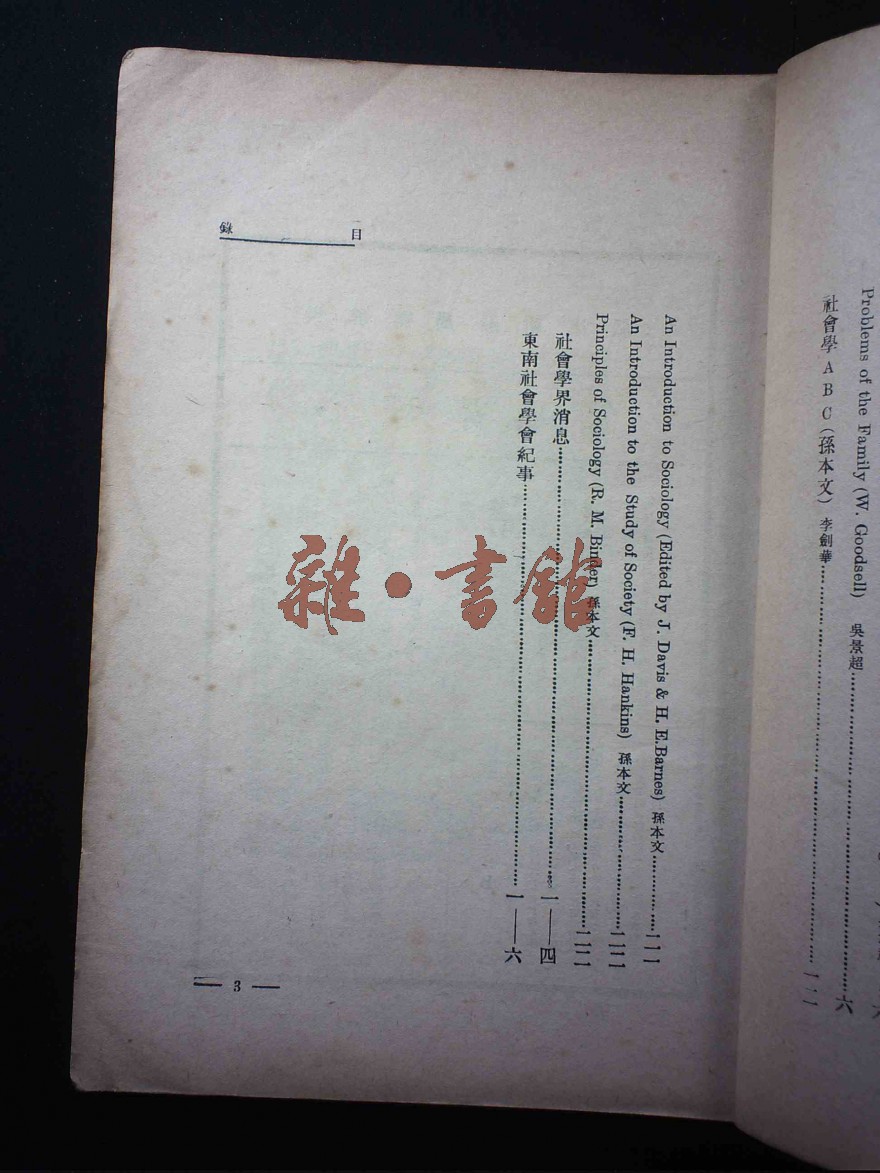 Problems of the Family (W. Goodsell) 吳景超……六
社會學ABC(孫本文) 李劍華……
目錄
An Introduction to Sociology (Edited by J. Davis & H. E. Barnes) 孫本文……
An Introduction to the Study of Society (F. H. Hankins) 孫本文……
Principles of Sociology (R. M. Binder) 孫本文……
社會學界消息……一——四
東南社會學會紀事……一——六
— 3 —
雜·書館